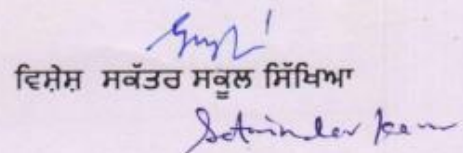 ਵਿਸ਼ੇਸ਼ ਸਕੱਤਰ ਸਕੂਲ ਸਿੱਖਿਆ
Satninder Kaur